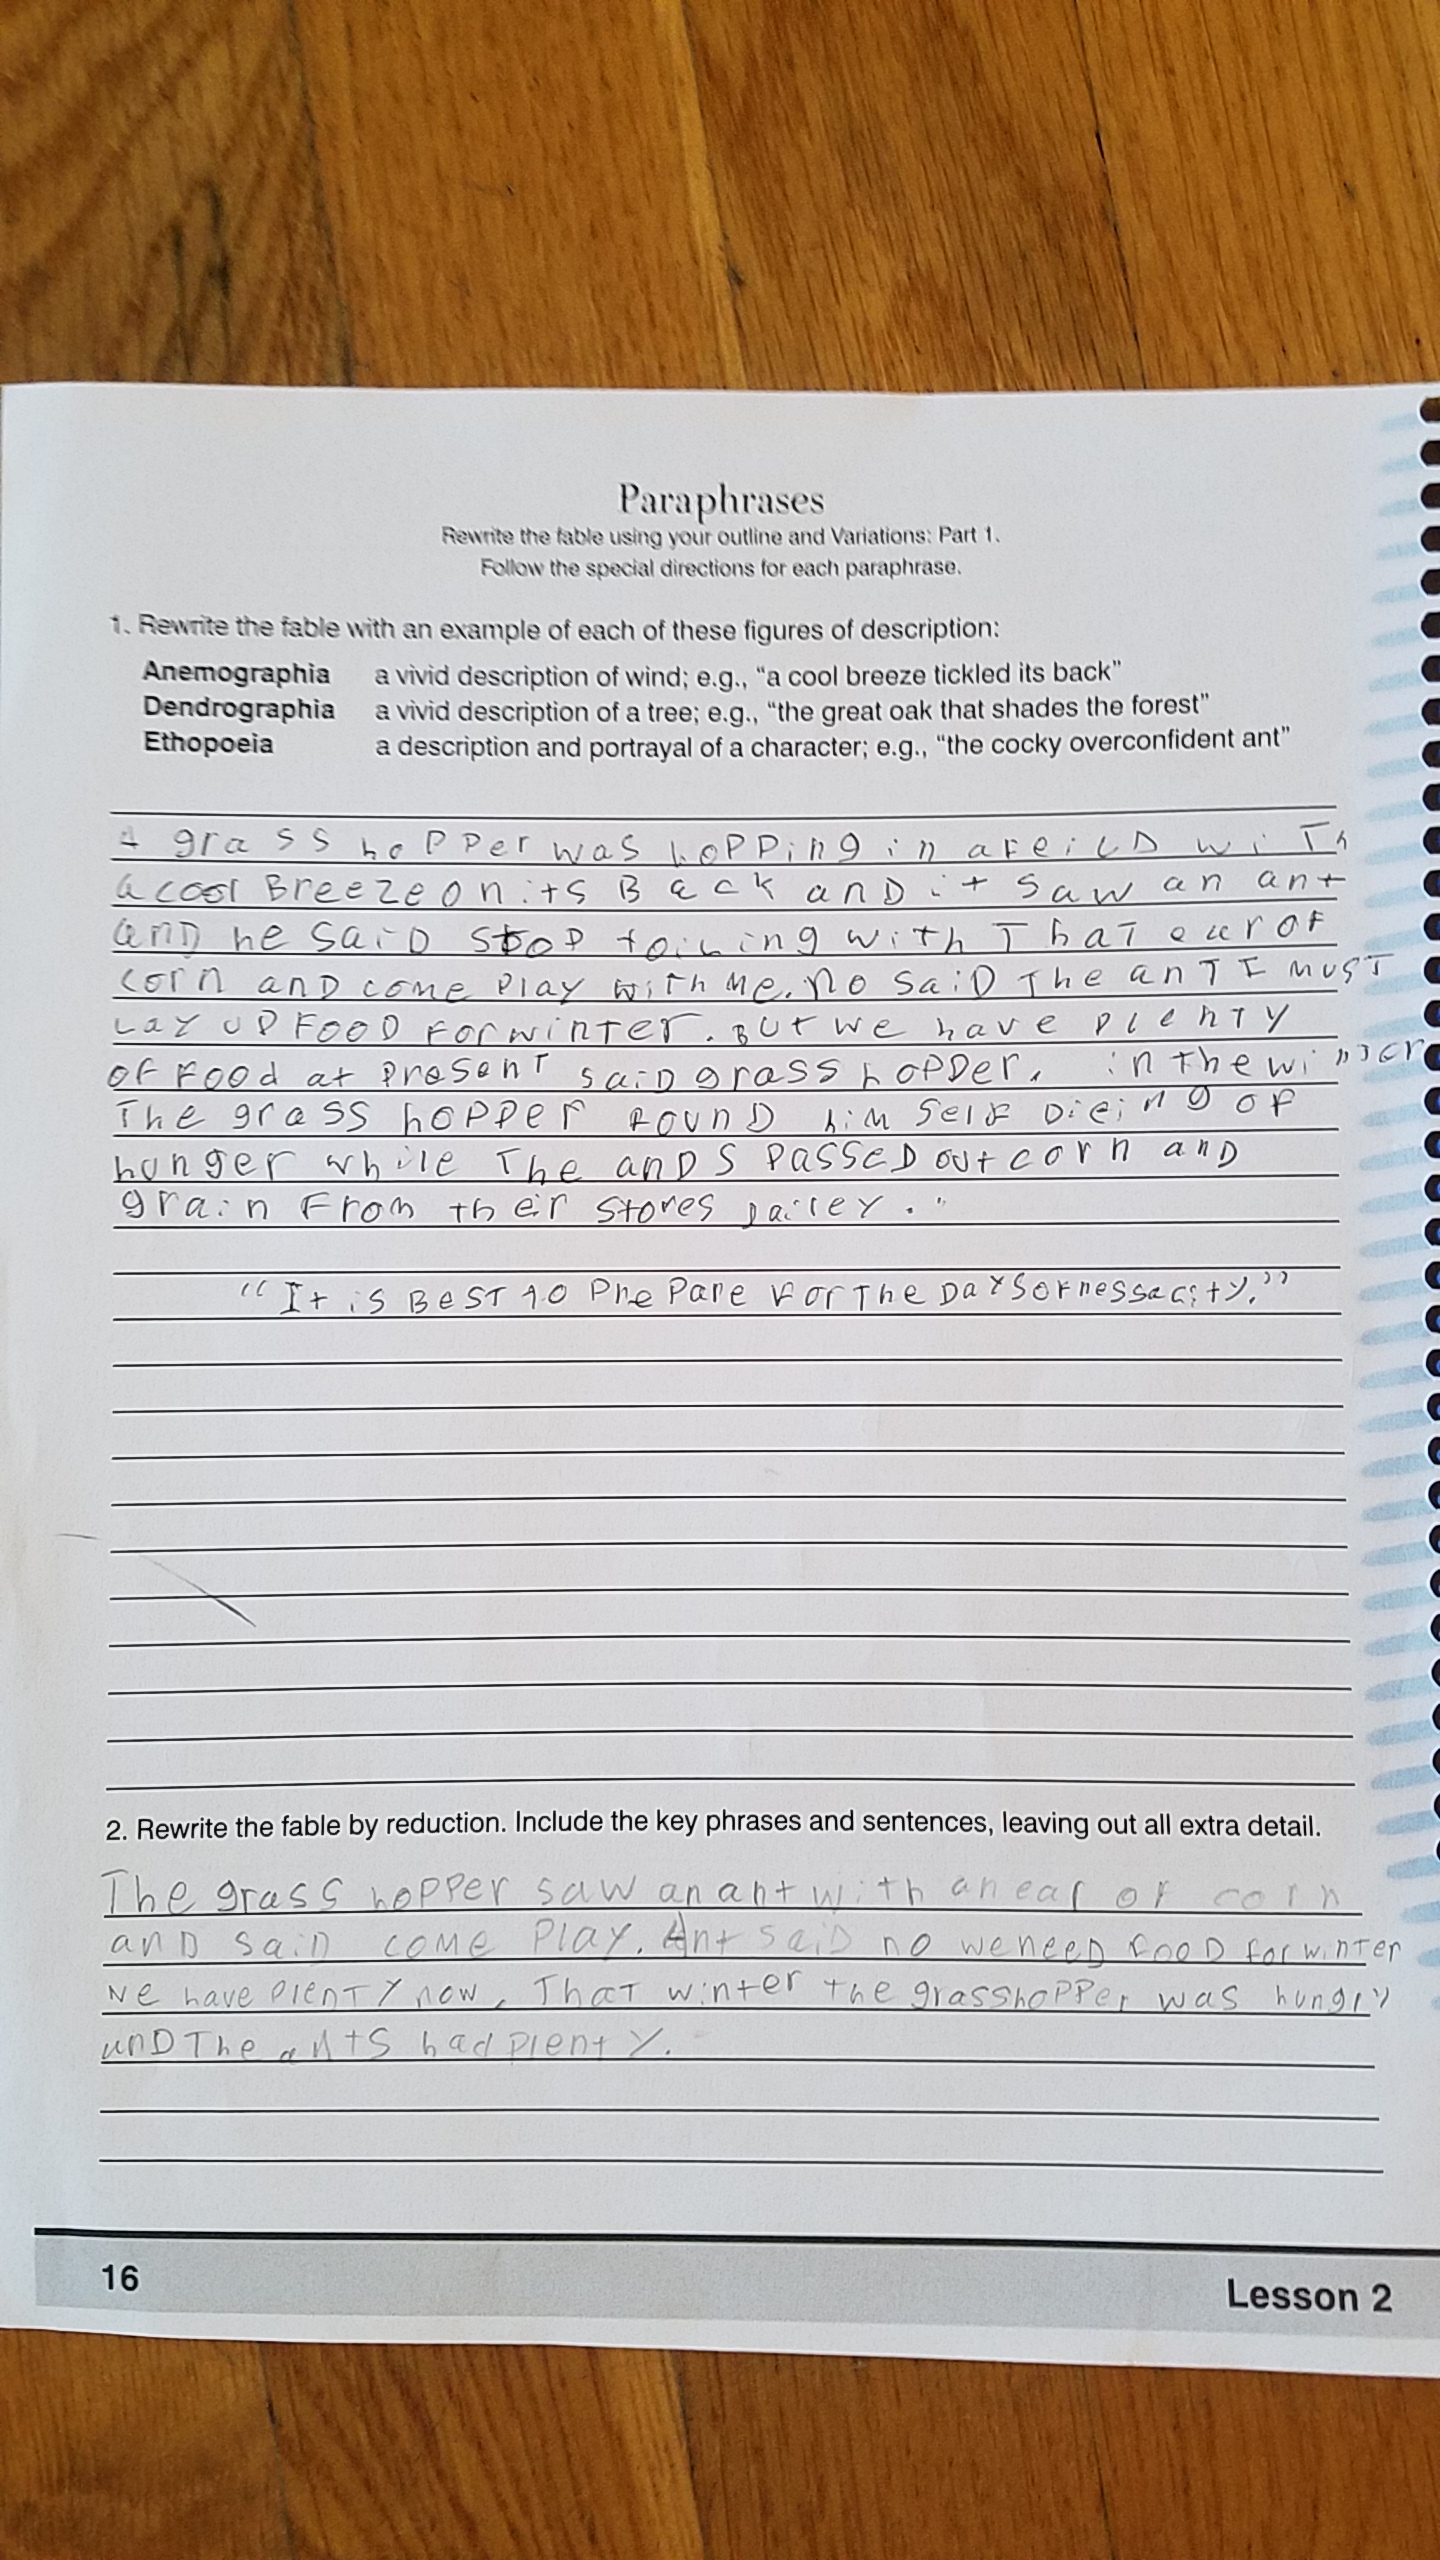 Paraphrases
Rewrite the fable using your outline and Variations: Part 1.
Follow the special directions for each paraphrase.
1. Rewrite the fable with an example of each of these figures of description:
Anemographia a vivid description of wind; e.g., "a cool breeze tickled its back"
Dendrographia a vivid description of a tree; e.g., "the great oak that shades the forest"
Ethopoeia a description and portrayal of a character; e.g., "the cocky overconfident ant"
A grass hopper was hopping in a feild with
a cool Breeze on its Back anD it saw an ant
anD he saiD stop toiling with That ear of
corn anD come play with me. no saiD The anT I musT
Lay up FooD For winTer. But we have plenty
of Food at PresenT saiD grass hopper. in the winter
The grass hopper founD him self Dieing of
hunger while The anDs PasseD out corn anD
grain From their stores Dailey. "
"It is BesT to PrePare For The Days of nessacity."
2. Rewrite the fable by reduction. Include the key phrases and sentences, leaving out all extra detail.
The grass hopper saw an ant with an ear of corn
anD saiD come Play. Ant saiD no we neeD fooD for winTer
We have PlenTy now. ThaT winter the grasshopper was hungry
anD The ants had plenty.
16
Lesson 2